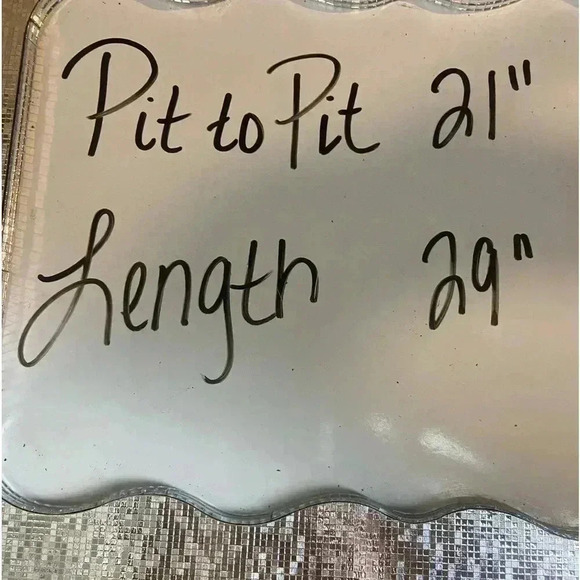 Pit to Pit 21"
Length 29"